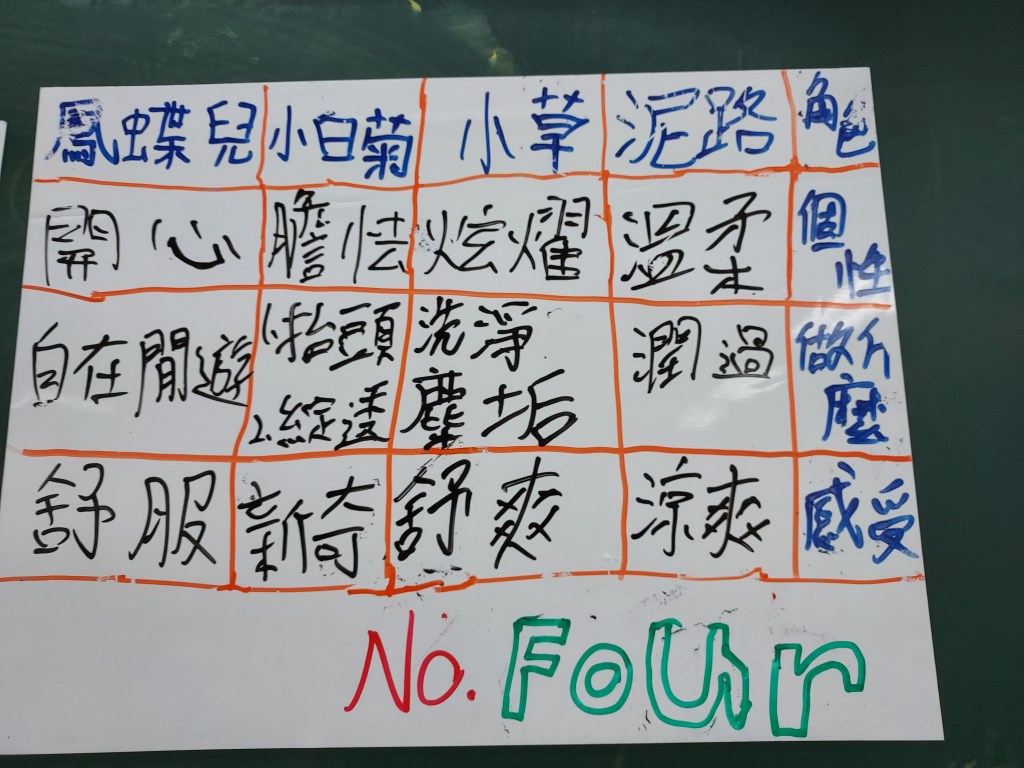 鳳蝶兒 小白菊 小草 泥路 角色
開心 膽怯 炫燿 溫柔 個性
自在閒遊 1.抬頭 2.綻透 洗淨塵垢 潤過 做什麼
舒服 新奇 舒爽 涼爽 感受
No. FoUr